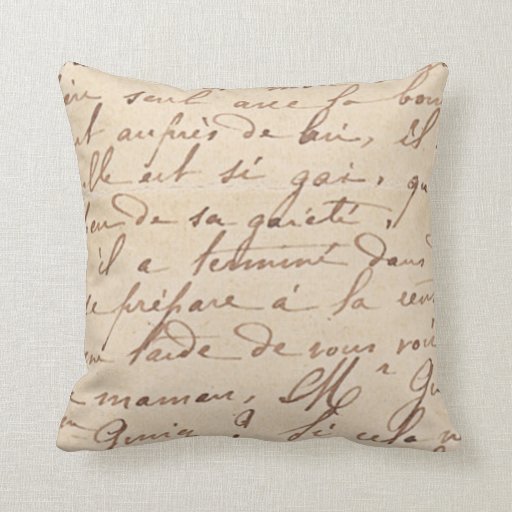 seul avec sa bon
t auprès de lui, il
lle est si gai, qu
de sa gaieté,
il a terminé dans
se prépare à la
tarde de vous voir
maman, Mr Gu
? Si cela